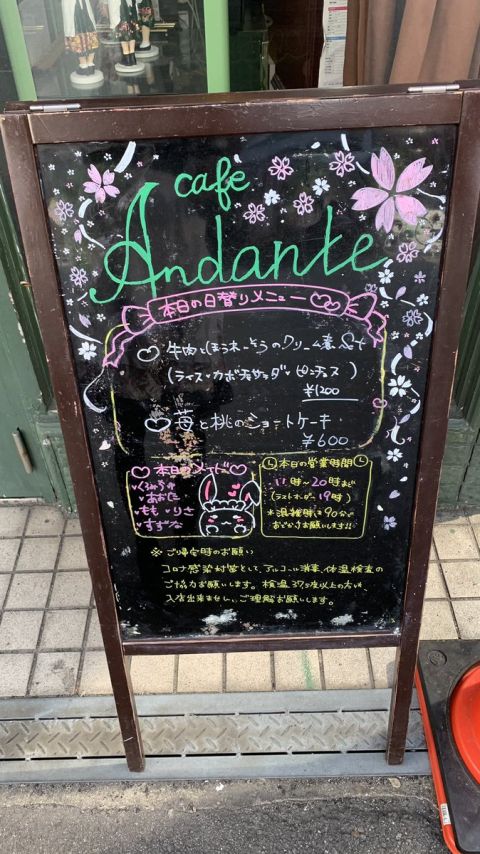 cafe
Andante
本日の日替りメニュー
牛肉とほうれんそうのクリーム煮 Set
(ライス・カボチャサラダ・
¥1200
苺と桃のショートケーキ
¥600
本日のメイド
くるみ
あおた
もも・りさ
すずな
本日の営業時間
11時〜20時まで
(ラストオーダー 19時)
*混雑時は90分で
おねがいします!!
※ご帰宅時のお願い
コロナ感染対策として、アルコール消毒、体温検査の
ご協力お願いします。検温37.5度以上の方は、
入店出来ません。ご理解お願いします。